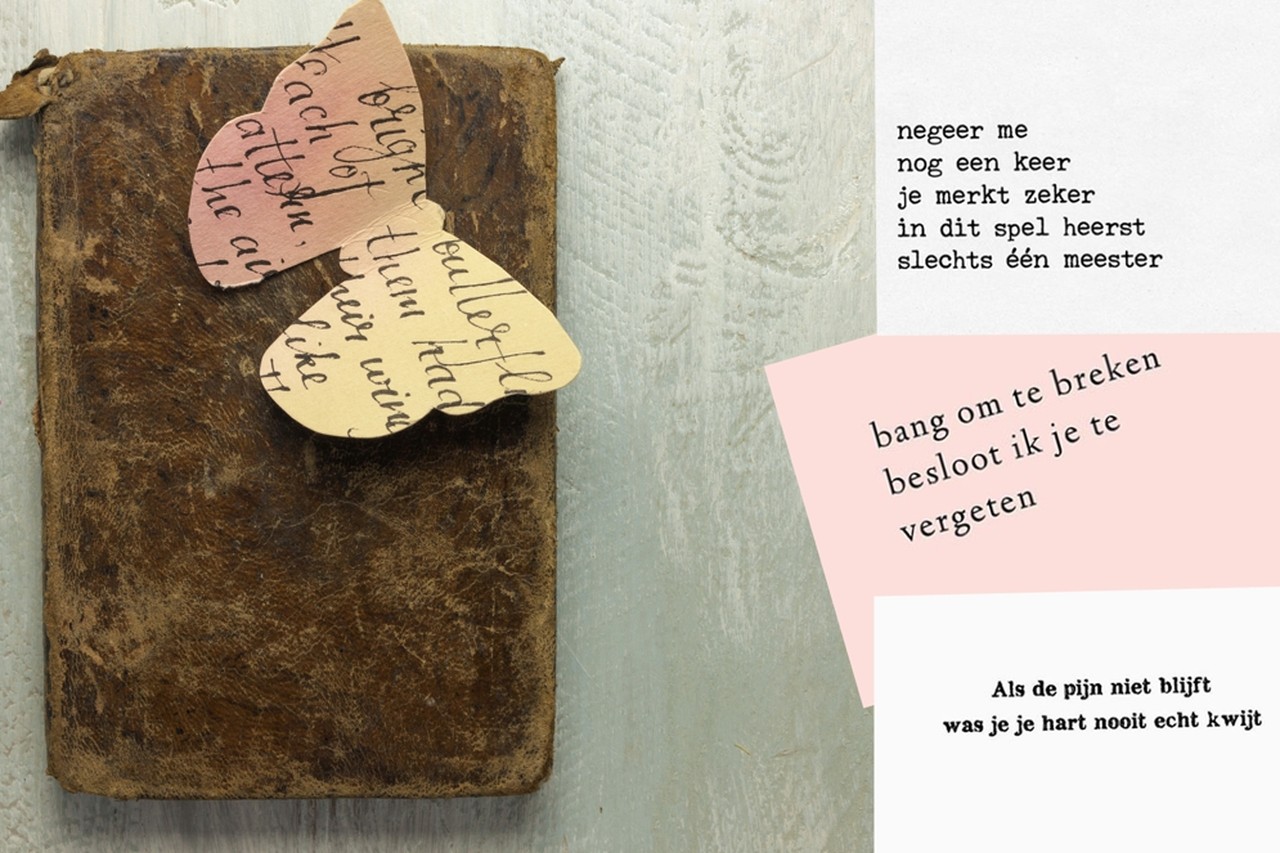 bright
Each of
attern,
the air
butterfl
them had
heir wing
like
negeer me
nog een keer
je merkt zeker
in dit spel heerst
slechts één meester
bang om te breken
besloot ik je te
vergeten
Als de pijn niet blijft
was je je hart nooit echt kwijt